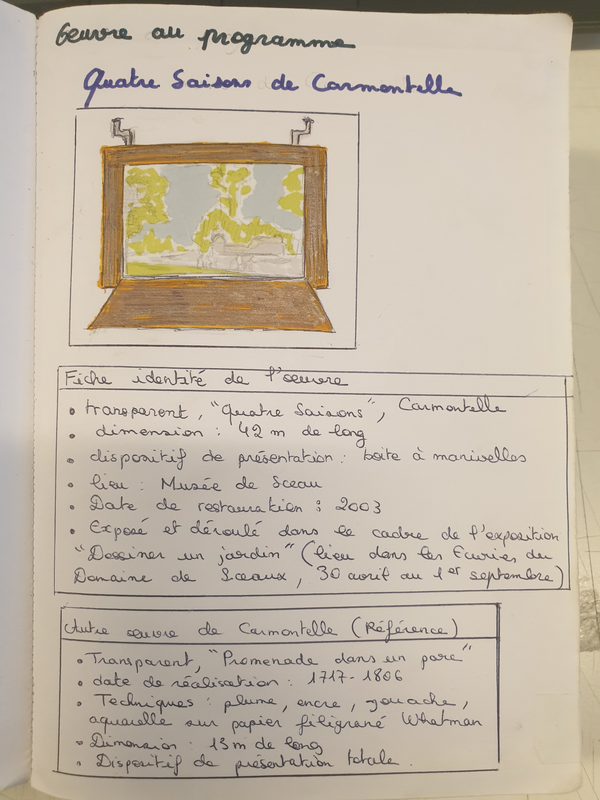 Oeuvre au programme
Quatre Saisons de Carmontelle
Fiche identité de l'œuvre
• transparent, "Quatre Saisons", Carmontelle
• dimension : 42 m de long
• dispositif de présentation : boite à manivelles
• lieu : Musée de Sceau
• Date de restauration : 2003
• Exposé et déroulé dans le cadre de l'exposition
"Dessiner un jardin" (lieu dans les Ecuries du
Domaine de Sceaux, 30 avril au 1er septembre)
Autre œuvre de Carmontelle (Référence)
• Transparent, "Promenade dans un parc"
• date de réalisation : 1717-1806
• Techniques : plume, encre, gouache,
aquarelle sur papier filigrané Whatman
• Dimension : 13 m de long
• Dispositif de présentation totale.